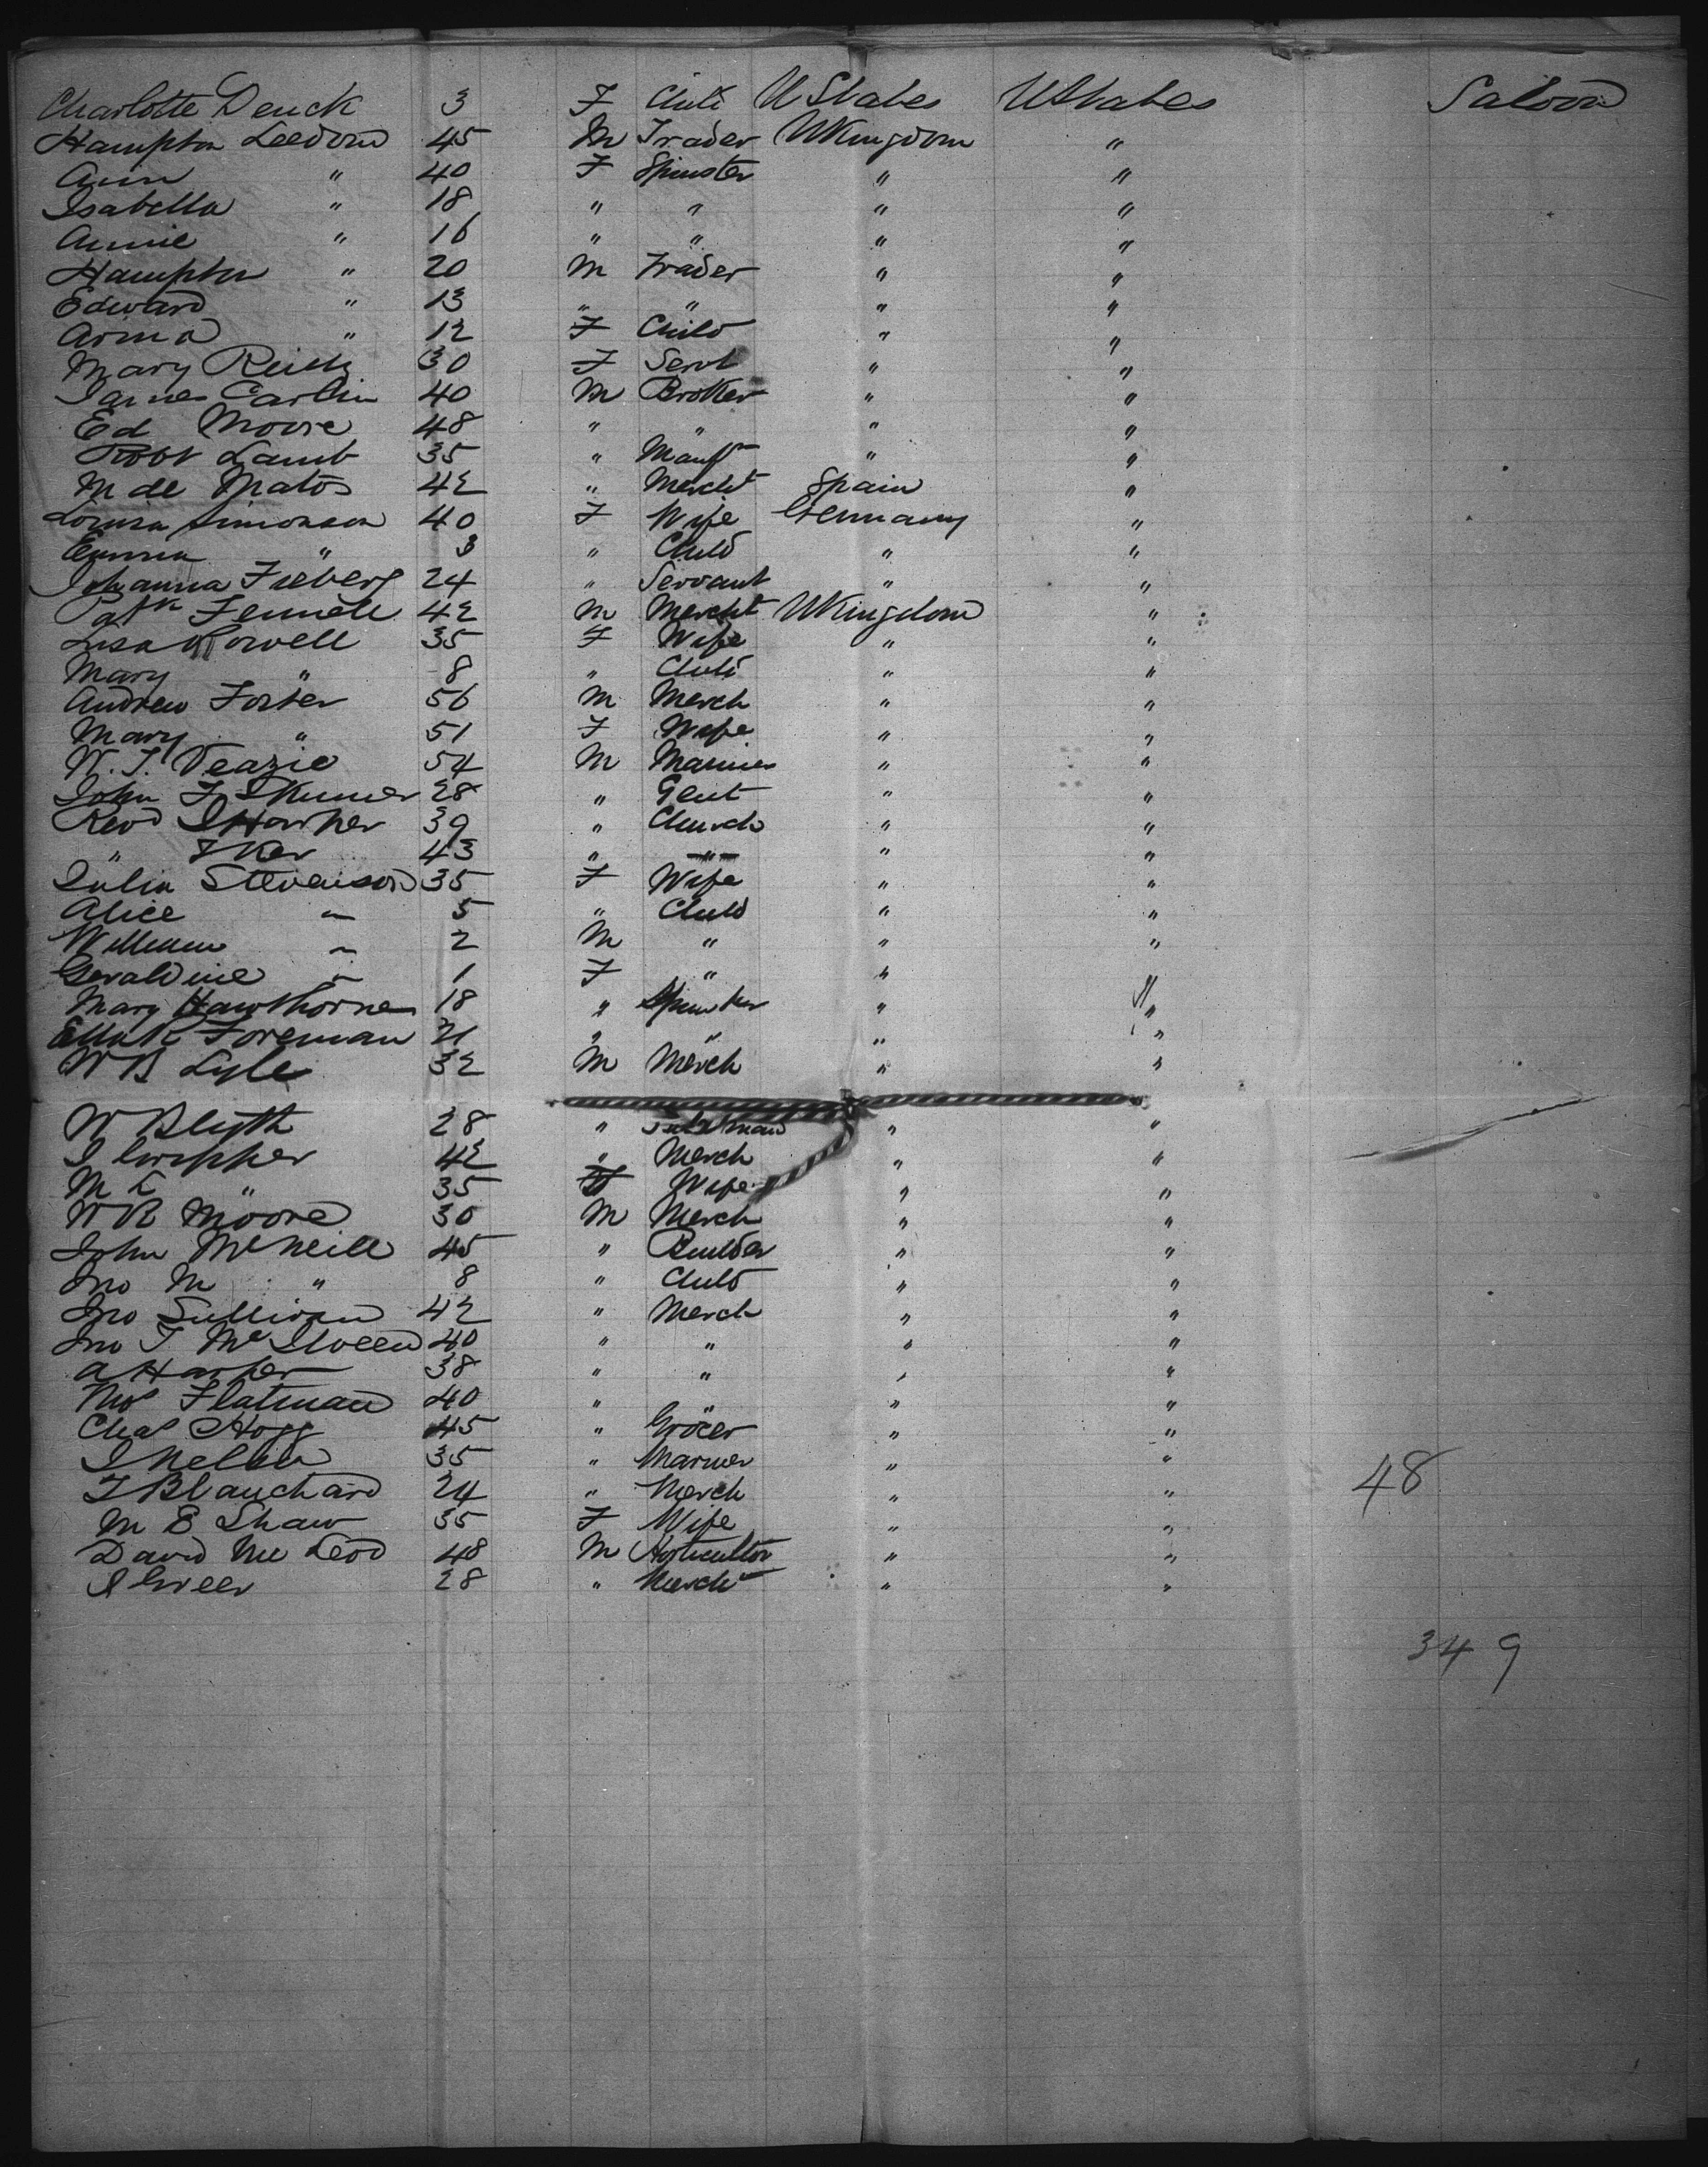 Charlotte Denck 3 F Child U States U States Saloon
Hampton Leedom 45 M Trader U Kingdom "
Ann " 40 F Spinster " "
Isabella " 18 " " " "
Annie " 16 " " " "
Hampton " 20 M Trader " "
Edward " 13 " " " "
" 12 F Child " "
Mary 30 F Servt " "
James Carlin 40 M Broker " "
Ed Moore 48 " " " "
Robt Lamb 35 " Manfr " "
M de Matos 42 " Mercht Spain "
Louisa Simonson 40 F Wife Germany "
Emma " 3 " Child " "
Johanna Freberg 24 " Servant " "
Patk Fennell 42 M Mercht U Kingdom "
Lisa Powell 35 F Wife " "
Mary " 8 " Child " "
Andrew Foster 56 M Merch " "
Mary " 51 F Wife " "
W. T. Veazie 54 M Mariner " "
John F Skinner 28 " Gent " "
Revd I Harper 39 " Church " "
" J Ker 43 " " " "
Julia Stevenson 35 F Wife " "
Alice " 5 " Child " "
William " 2 M " " "
Geraldine " 1 F " " "
Mary Hawthorne 18 " Spinster " "
Ella K Foreman 21 " " " "
W B Lyle 32 M Merch " "
W Blyth 28 " " "
I 42 " Merch " "
M L " 35 F Wife " "
W R Moore 30 M Merch " "
John McNeill 45 " Builder " "
Jno M " 8 " Child " "
Jno Sullivan 42 " Merch " "
Jno T McIlveen 40 " " " "
A Harper 38 " " " "
Flatman 40 " " " "
Chas Hogg 45 " Grocer " "
35 " Mariner " "
J Blanchard 24 " Merch " " 48
M E Shaw 35 F Wife " "
David McLeod 48 M Horticultor " "
I Greer 28 " Mercht " "
349